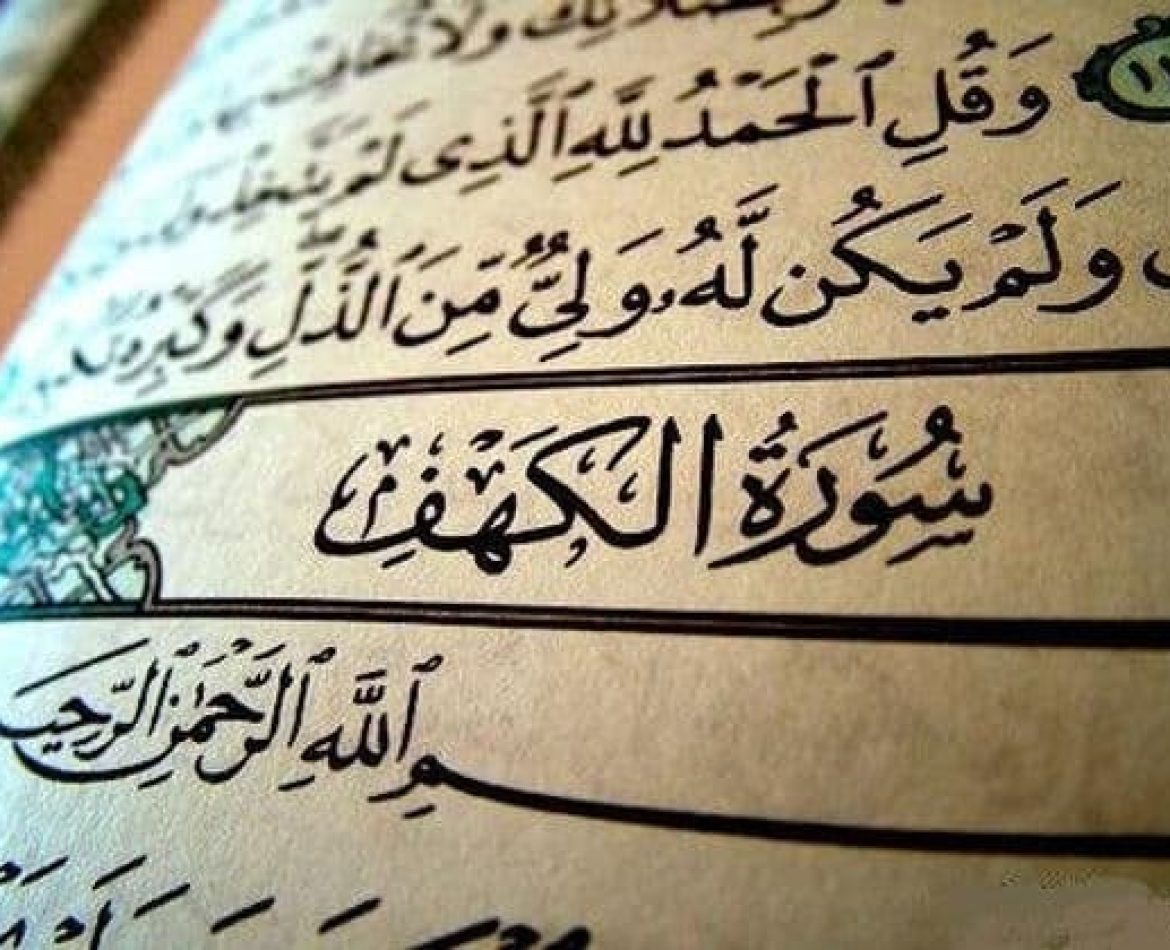 ولا تخافت
وَقُلِ ٱلْحَمْدُ لِلَّهِ ٱلَّذِى لَمْ يَتَّخِذْ
وَلَمْ يَكُن لَّهُۥ وَلِىٌّ مِّنَ ٱلذُّلِّ وَكَبِّرْهُ
سُورَةُ الكَهْفِ
ـمِ ٱللَّهِ ٱلرَّحْمَٰنِ ٱلرَّحِيـ